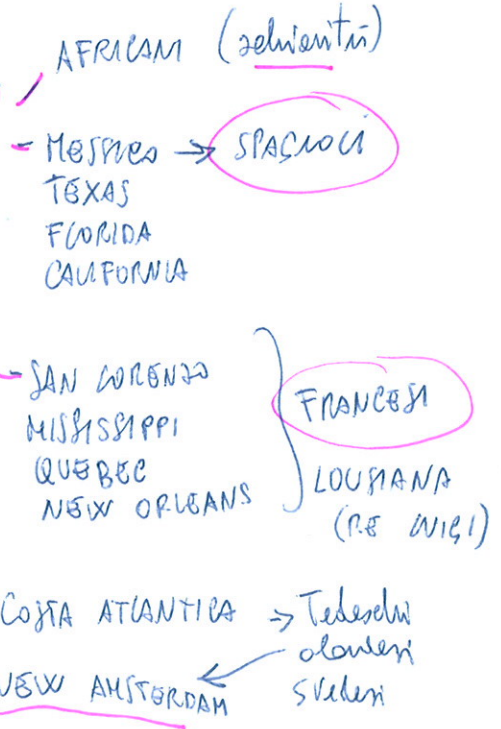 AFRICANI (schiavitù)
- MESSICO → SPAGNOLI
TEXAS
FLORIDA
CALIFORNIA
- SAN LORENZO
MISSISSIPPI
QUEBEC
NEW ORLEANS
FRANCESI
LOUSIANA
(RE LUIGI)
COSTA ATLANTICA → Tedeschi
olandesi
NEW AMSTERDAM
Svedesi